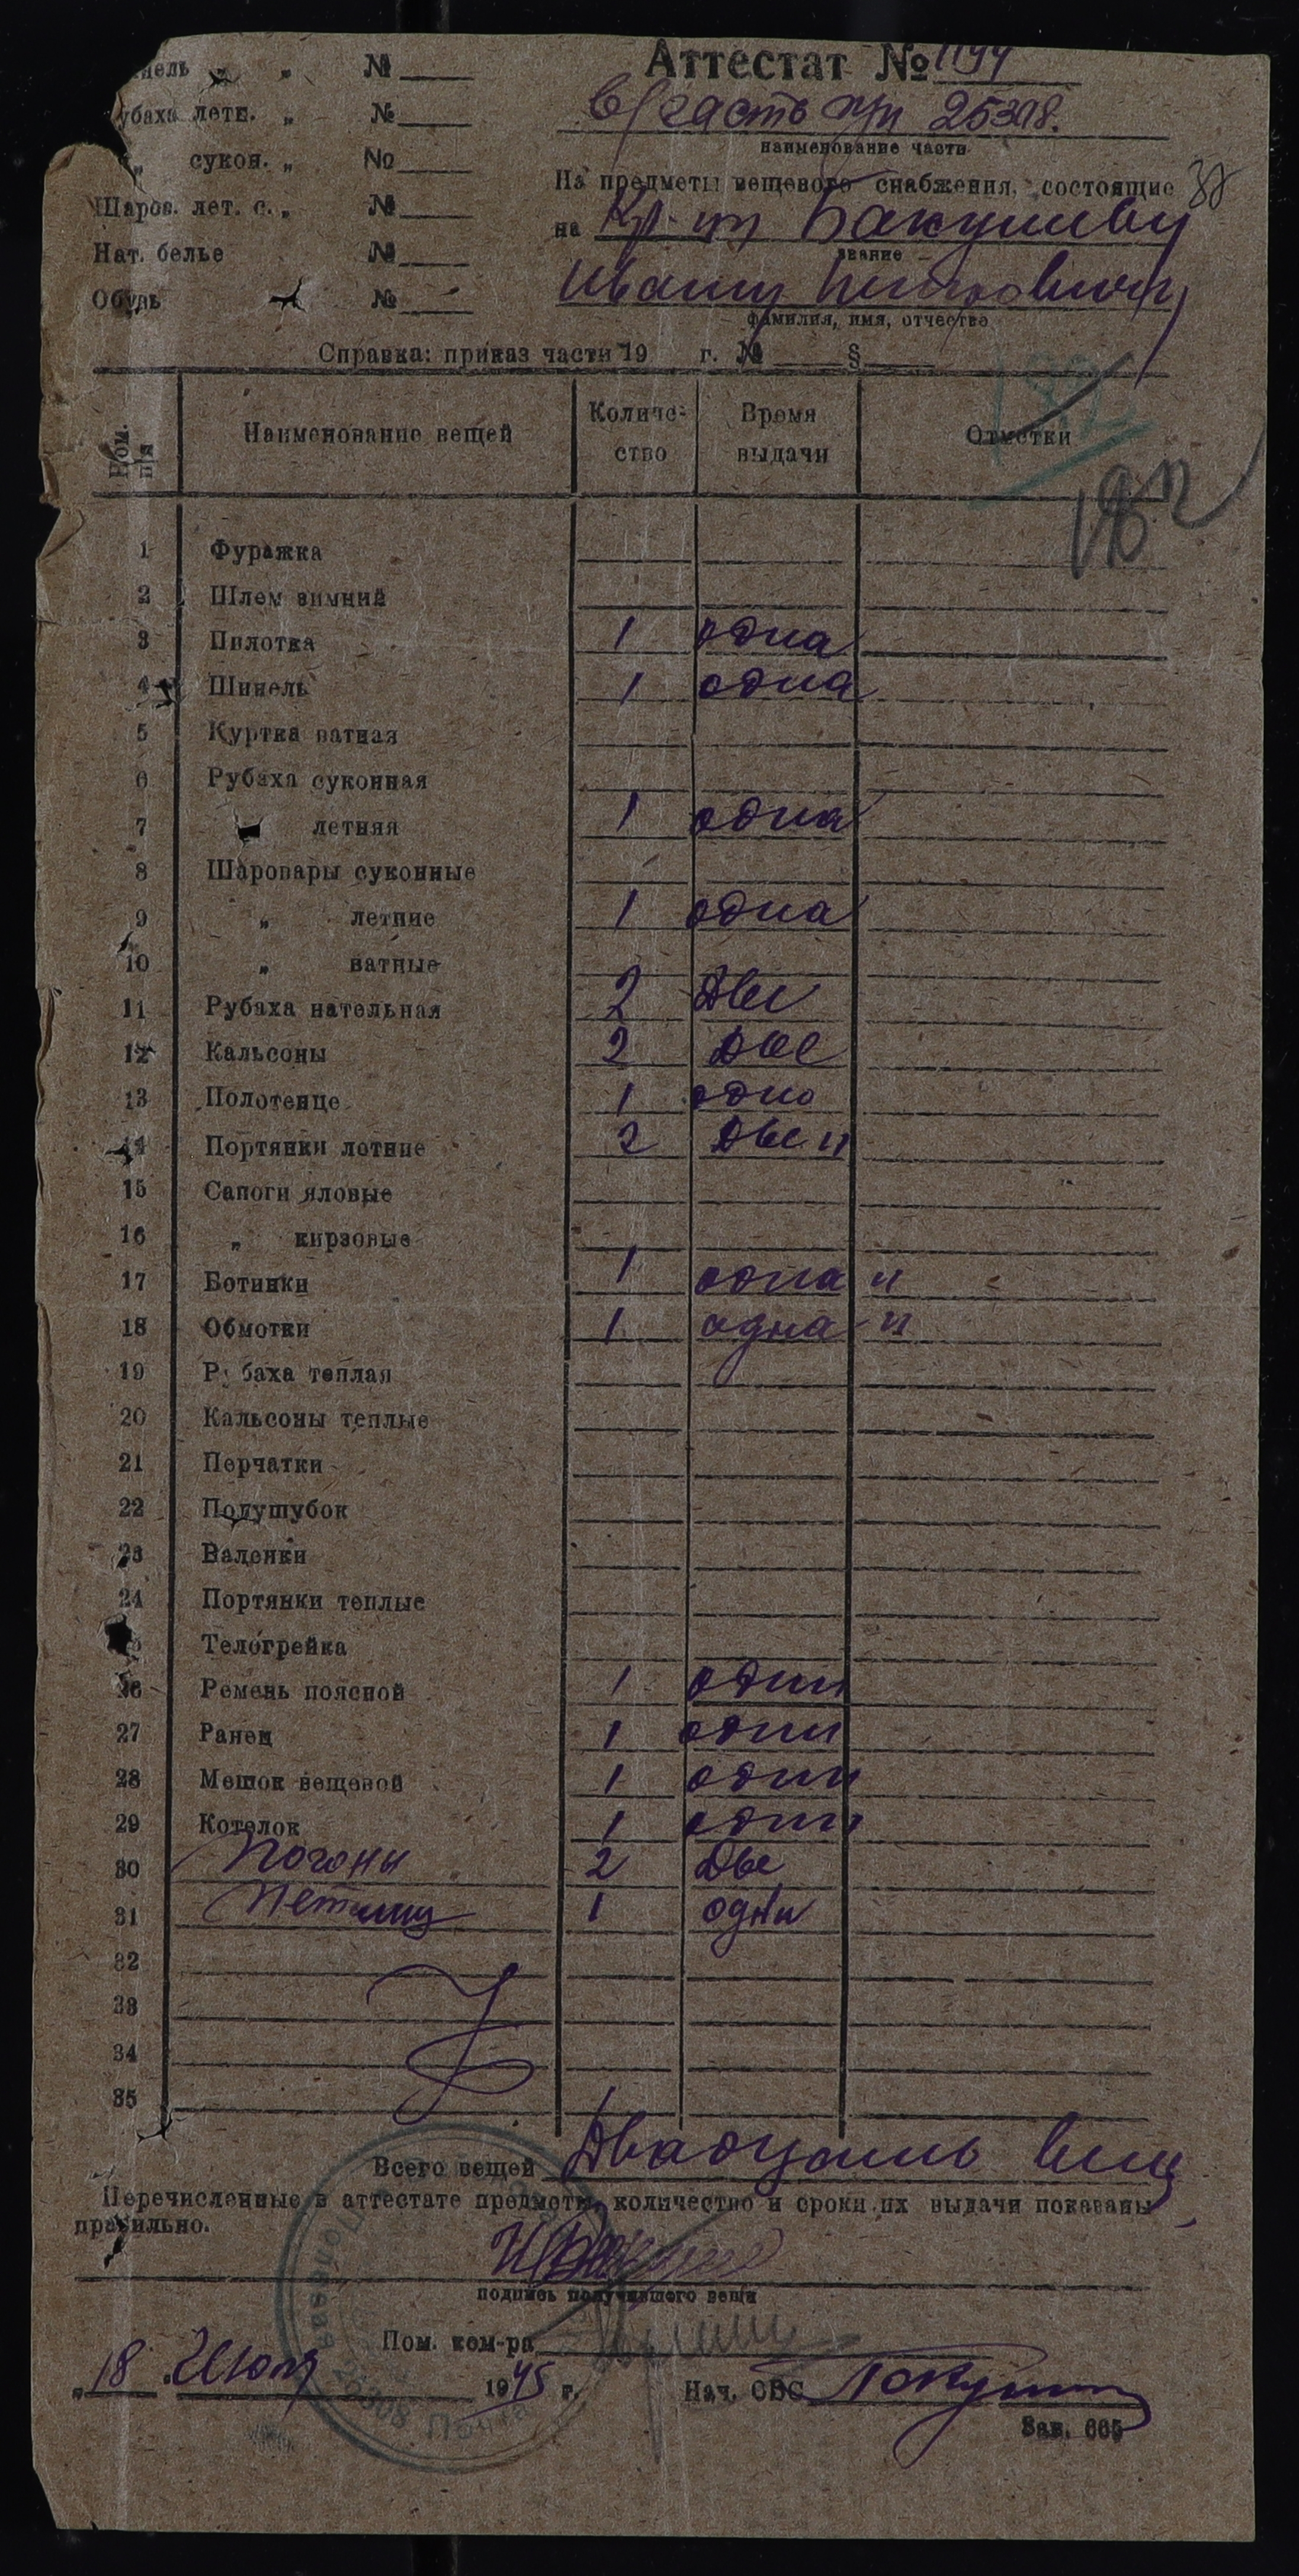 Аттестат № 1194
в/часть п/п 25308.
наименование части
На предметы вещевого снабжения, состоящие
на Кр-цу Бакушеву
звание
Ивану Петровичу
фамилия, имя, отчество
убаха летн. „ №
„ сукон. „ №
Шаров. лет. с. „ №
Нат. белье №
Обувь №
Справка: приказ части 19 г. № §
Ном. п/п Наименование вещей Количе-ство Время выдачи Отметки
1 Фуражка
2 Шлем зимний
3 Пилотка 1 одна
4 Шинель 1 одна
5 Куртка ватная
6 Рубаха суконная
7 „ летняя 1 одна
8 Шаровары суконные
9 „ летние 1 одна
10 „ ватные
11 Рубаха нательная 2 Две
12 Кальсоны 2 Две
13 Полотенце 1 одно
14 Портянки летние 2 Две п
15 Сапоги яловые
16 „ кирзовые
17 Ботинки 1 одна п
18 Обмотки 1 одна п
19 Рубаха теплая
20 Кальсоны теплые
21 Перчатки
22 Полушубок
23 Валенки
24 Портянки теплые
25 Телогрейка
26 Ремень поясной 1 один
27 Ранец 1 один
28 Мешок вещевой 1 один
29 Котелок 1 один
30 Погоны 2 Две
31 Петлицы 1 одни
32
33
34
35
Всего вещей Двадцать вещ
Перечисленные в аттестате предметы, количество и сроки их выдачи показаны
правильно.
подпись получившего вещи
Пом. ком-ра
„18 Июля 1945 г. Нач. ОВС
Зак. 665
Полевая Почта 25308